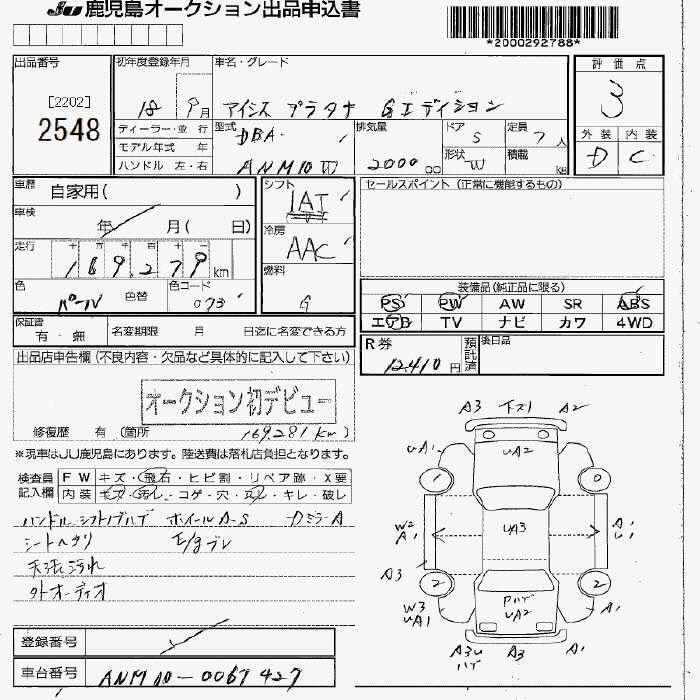 JU 鹿児島オークション出品申込書
*2000292788*
出品番号
[2202]
2548
初年度登録年月
18 9月
車名・グレード
アイシス プラタナ Gエディション
評価点
3
外装 内装
D C
ディーラー・並行
モデル年式 年
ハンドル 左・右
型式
DBA-
ANM10W
排気量
2000 cc
ドア 5
形状 W
定員 7人
積載 kg
車歴 自家用( )
車検 年 月( 日)
走行 十 万 千 百 十
169,279 km
色 パール 色替
色コード 073
シフト
IAT
冷房
AAC
燃料
G
セールスポイント(正常に機能するもの)
装備品(純正品に限る)
PS PW AW SR ABS
エアB TV ナビ カワ 4WD
保証書 有・無
名変期限 月 日迄に名変できる方
R券 12,410円
預託済
後日品
出品店申告欄(不良内容・欠品など具体的に記入して下さい)
オークション初デビュー
修復歴 有 (箇所 169.281km)
※現車はJU鹿児島にあります。陸送費は落札店負担となります。
検査員記入欄
FW キズ・飛石・ヒビ割・リペア跡・X要
内装 キズ・汚レ・コゲ・穴・スレ・キレ・破レ
ハンドルシフトノブハゲ ホイールA-S DミラーA
シートヘタリ E/gブレ
天張汚れ
外オーディオ
A3 下スリ A2
UA1 UA2
1 0
W2 A1 UA3 A1 U1
A3
2 2
W3 UA1 PハゲUA2 A1
A3U ハゲ A3 A1
登録番号
車台番号 ANM10-0067427